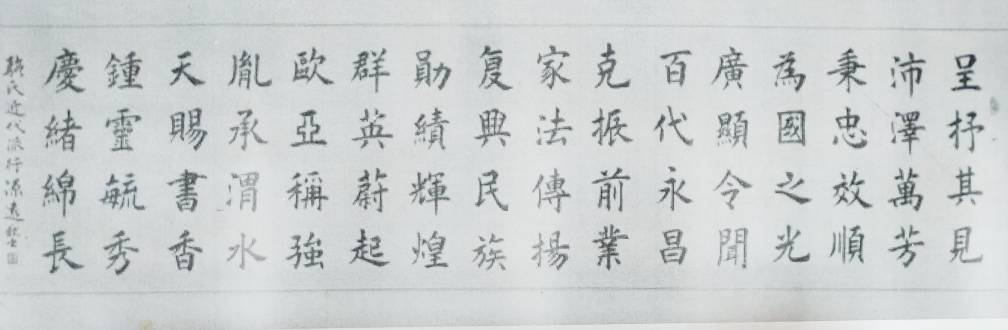 呈抒其見
沛澤萬芳
秉忠效順
為國之光
廣顯令聞
百代永昌
克振前業
家法傳揚
复興民族
勛績輝煌
群英蔚起
歐亞稱強
胤承渭水
天賜書香
鍾靈毓秀
慶緒綿長
氏近代派行源遠